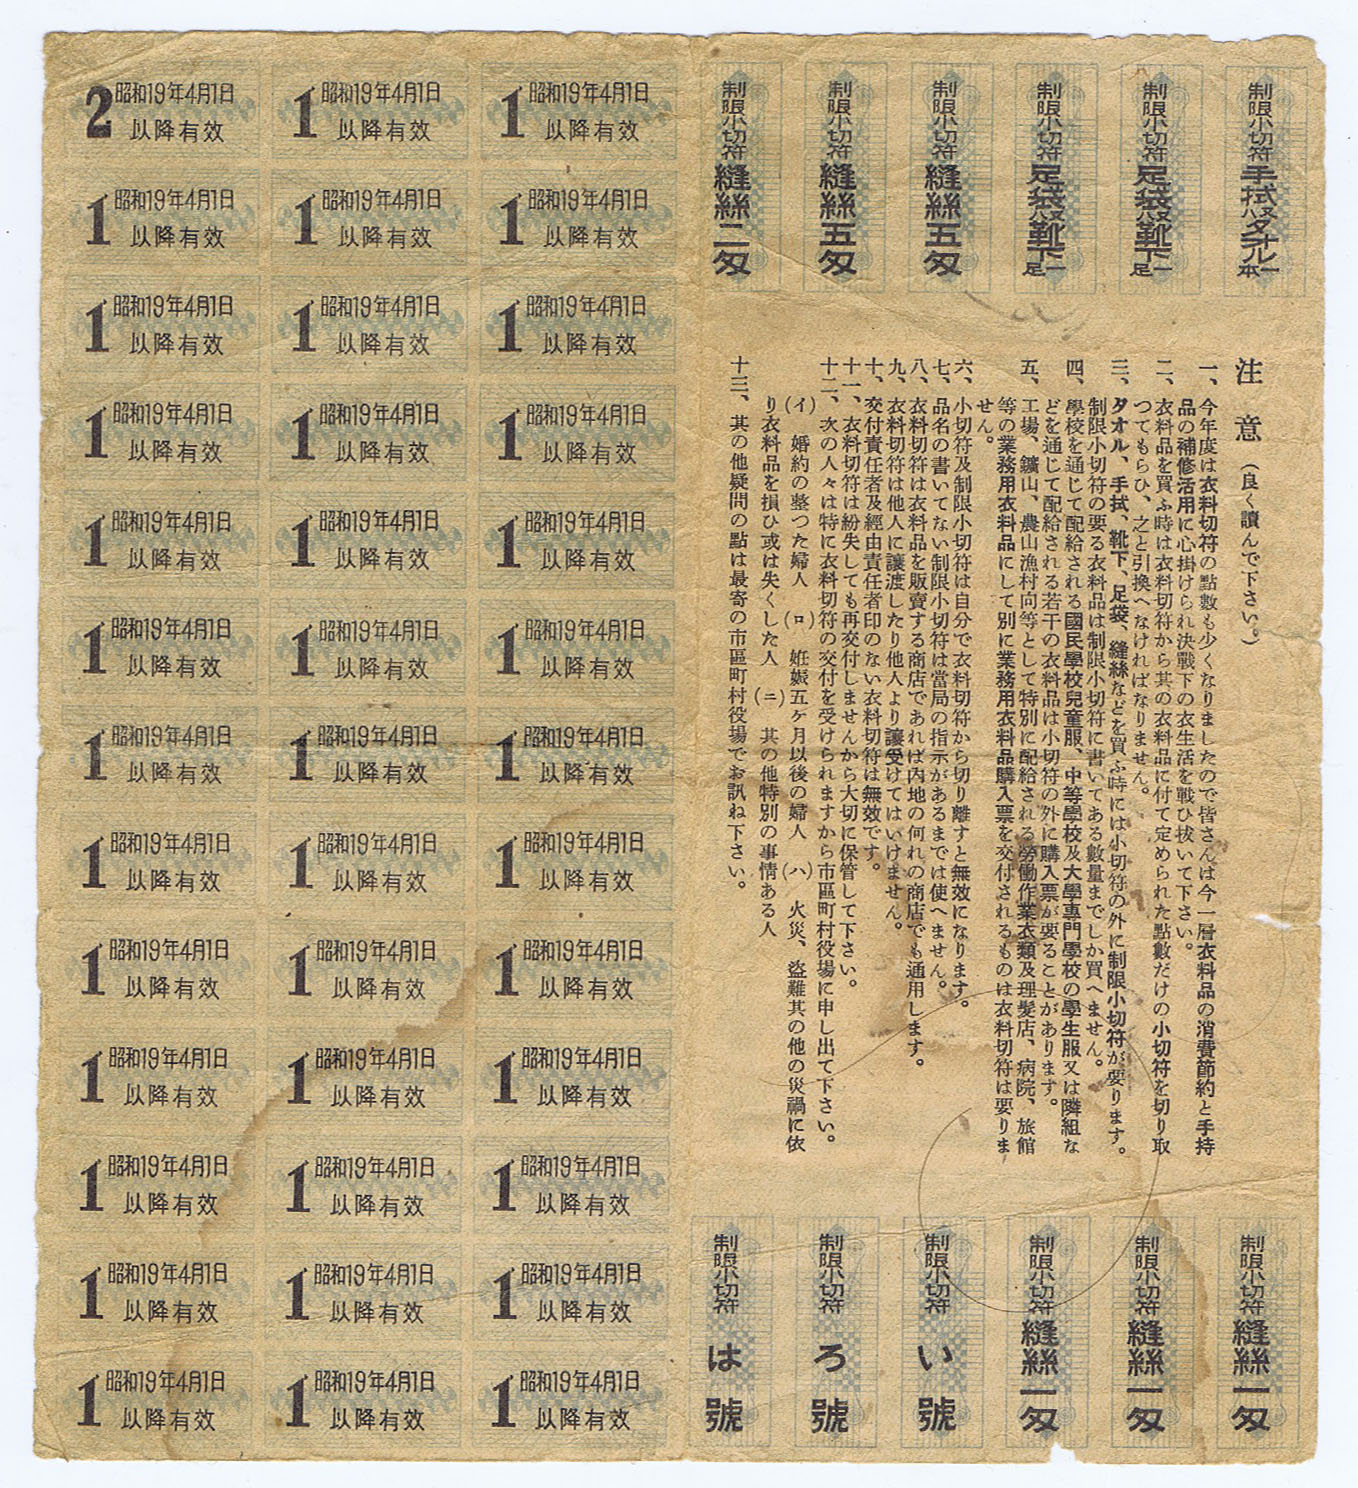 制限小切符 手拭又ハタオル一本
制限小切符 足袋又ハ靴下一足
制限小切符 足袋又ハ靴下一足
制限小切符 縫絲五匁
制限小切符 縫絲五匁
制限小切符 縫絲二匁
注意(良く讀んで下さい。)
一、今年度は衣料切符の點數も少くなりましたので皆さんは今一層衣料品の消費節約と手持
品の補修活用に心掛けられ決戰下の衣生活を戰ひ拔いて下さい。
二、衣料品を買ふ時は衣料切符から其の衣料品に付て定められた點數だけの小切符を切り取
つてもらひ、之と引換へなければなりません。
三、タオル、手拭、靴下、足袋、縫絲などを買ふ時には小切符の外に制限小切符が要ります。
制限小切符の要る衣料品は制限小切符に書いてある數量までしか買へません。
四、學校を通じて配給される國民學校兒童服、中等學校及大學專門學校の學生服又は隣組な
どを通じて配給される若干の衣料品は小切符の外に購入票が要ることがあります。
五、工場、鑛山、農山漁村向等として特別に配給される勞働作業衣類及理髮店、病院、旅館
等の業務用衣料品にして別に業務用衣料品購入票を交付されるものは衣料切符は要りま
せん。
六、小切符及制限小切符は自分で衣料切符から切り離すと無效になります。
七、品名の書いてない制限小切符は當局の指示があるまでは使へません。
八、衣料切符は衣料品を販賣する商店であれば内地の何れの商店でも通用します。
九、衣料切符は他人に讓渡したり他人より讓受けてはいけません。
十、交付責任者及經由責任者印のない衣料切符は無效です。
十一、衣料切符は紛失しても再交付しませんから大切に保管して下さい。
十二、次の人々は特に衣料切符の交付を受けられますから市區町村役場に申し出て下さい。
(イ) 婚約の整つた婦人 (ロ) 姙娠五ケ月以後の婦人 (ハ) 火災、盜難其の他の災禍に依
り衣料品を損ひ或は失くした人 (ニ) 其の他特別の事情ある人
十三、其の他疑問の點は最寄の市區町村役場でお訊ね下さい。
制限小切符 縫絲一匁
制限小切符 縫絲一匁
制限小切符 縫絲一匁
制限小切符 い號
制限小切符 ろ號
制限小切符 は號
2 昭和19年4月1日 1 昭和19年4月1日 1 昭和19年4月1日
以降有效 以降有效 以降有效
1 昭和19年4月1日 1 昭和19年4月1日 1 昭和19年4月1日
以降有效 以降有效 以降有效
1 昭和19年4月1日 1 昭和19年4月1日 1 昭和19年4月1日
以降有效 以降有效 以降有效
1 昭和19年4月1日 1 昭和19年4月1日 1 昭和19年4月1日
以降有效 以降有效 以降有效
1 昭和19年4月1日 1 昭和19年4月1日 1 昭和19年4月1日
以降有效 以降有效 以降有效
1 昭和19年4月1日 1 昭和19年4月1日 1 昭和19年4月1日
以降有效 以降有效 以降有效
1 昭和19年4月1日 1 昭和19年4月1日 1 昭和19年4月1日
以降有效 以降有效 以降有效
1 昭和19年4月1日 1 昭和19年4月1日 1 昭和19年4月1日
以降有效 以降有效 以降有效
1 昭和19年4月1日 1 昭和19年4月1日 1 昭和19年4月1日
以降有效 以降有效 以降有效
1 昭和19年4月1日 1 昭和19年4月1日 1 昭和19年4月1日
以降有效 以降有效 以降有效
1 昭和19年4月1日 1 昭和19年4月1日 1 昭和19年4月1日
以降有效 以降有效 以降有效
1 昭和19年4月1日 1 昭和19年4月1日 1 昭和19年4月1日
以降有效 以降有效 以降有效
1 昭和19年4月1日 1 昭和19年4月1日 1 昭和19年4月1日
以降有效 以降有效 以降有效